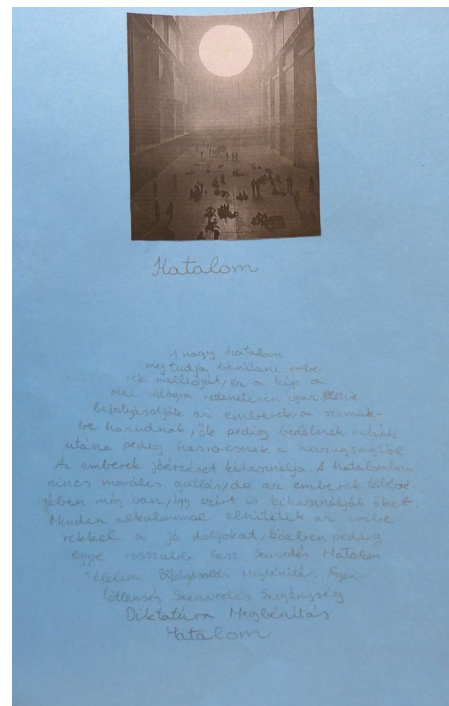 Hatalom
A nagy hatalom
meg tudja bénítani embe
rek működését, ez a kép a
mai világra rettenetesen igaz illetve
befolyásolják az embereket a szemük-
be hazudnak, ők pedig bedőlnek nekik
utána pedig hasra esnek a hazugságtól
Az emberek jóérzését kihasználja. A hatalomban
nincs morális gátlás, de az emberek többsé-
gében még van, így ezért is kihasználják őket.
Minden alkalommal elhitetik az embe
rekkel a jó dolgokat, közben pedig
egyre rosszabb lesz Szenvedés Hatalom
Félelem Befolyásolás Megbénítás Egyen
lőtlenség Szenvedés Szegénység
Diktatúra Megbénítás
Hatalom